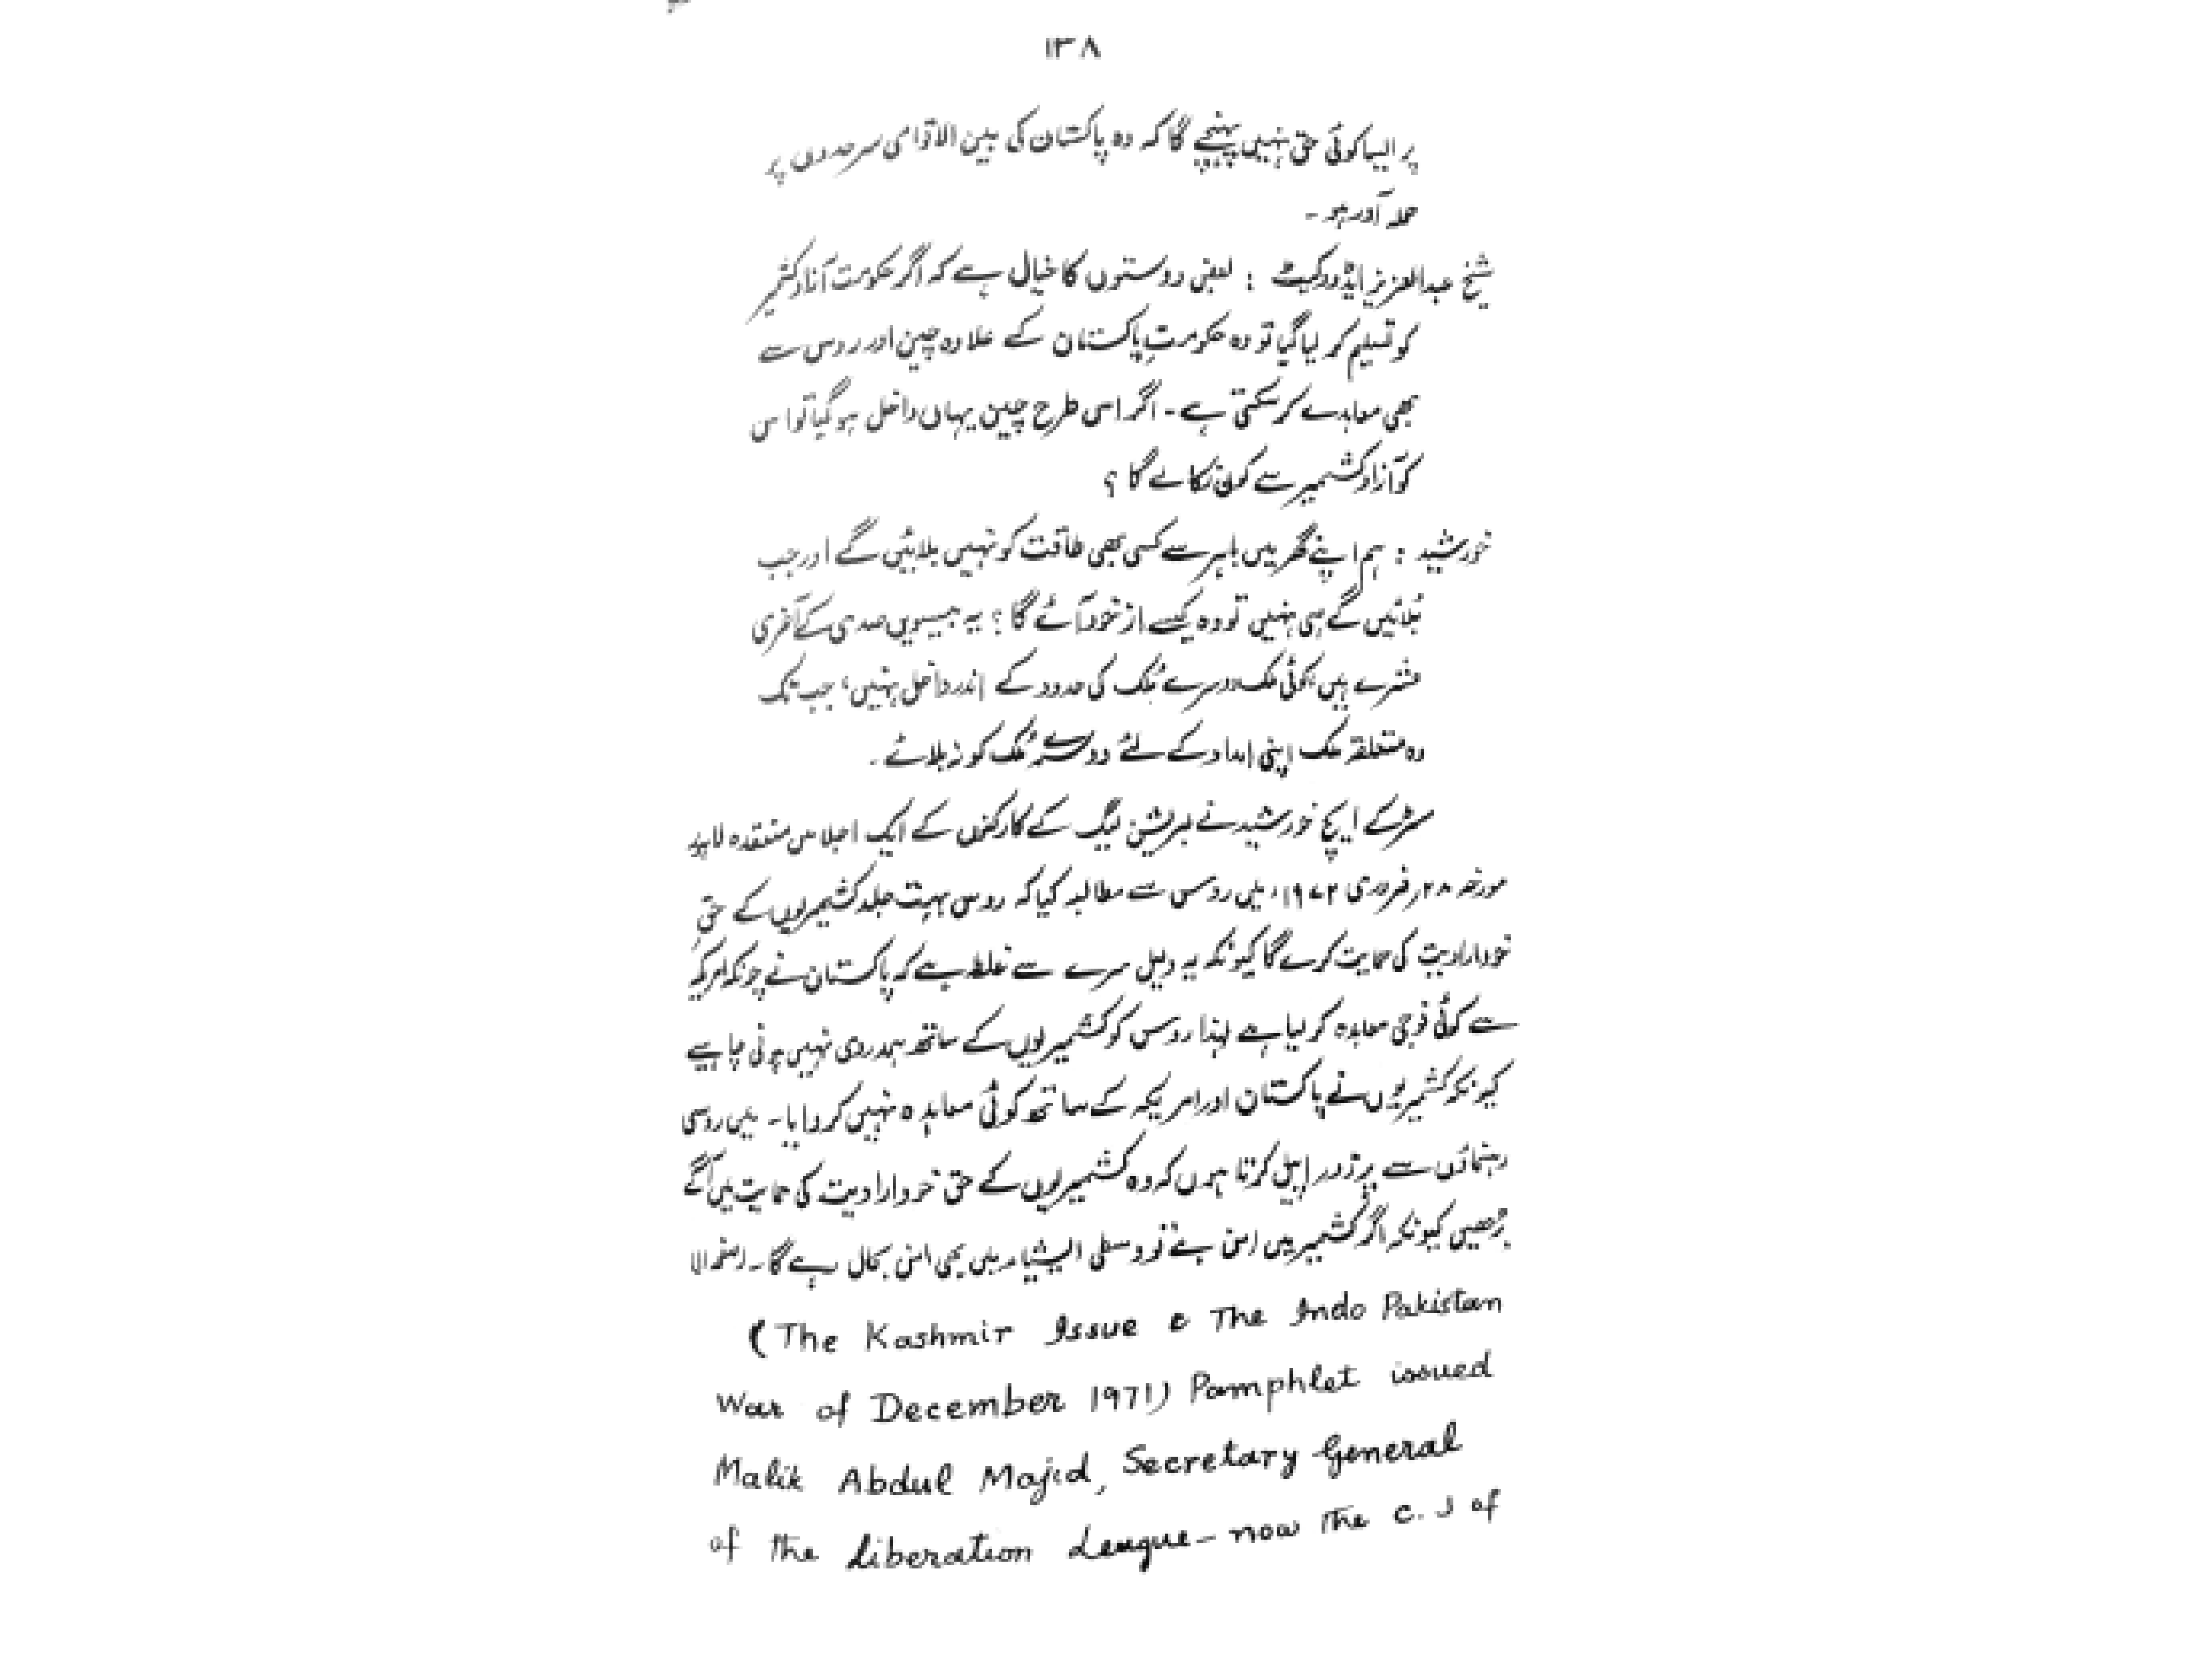 ۱۳۸
پر ایسا کوئی حق نہیں پہنچے گا کہ وہ پاکستان کی بین الاقوامی سرحدوں پر
حملہ آور ہو۔
شیخ عبدالعزیز ایڈووکیٹ : بعض دوستوں کا خیال ہے کہ اگر حکومت آزاد کشمیر
کو تسلیم کر لیا گیا تو وہ حکومتِ پاکستان کے علاوہ چین اور روس سے
بھی معاہدے کر سکتی ہے۔ اگر اس طرح چین یہاں داخل ہو گیا تو اس
کو آزاد کشمیر سے کون نکالے گا ؟
خورشید : ہم اپنے گھر میں باہر سے کسی بھی طاقت کو نہیں بلائیں گے اور جب
بُلائیں گے ہی نہیں تو وہ کیسے از خود آئے گا ؟ یہ بیسویں صدی کے آخری
عشرے ہیں، کوئی ملک دوسرے مُلک کی حدود کے اندر داخل نہیں، جب تک
وہ متعلقہ ملک اپنی امداد کے لئے دوسرے مُلک کو نہ بلائے ۔
مسٹر کے ایچ خورشید نے لبریشن لیگ کے کارکنوں کے ایک اجلاس منعقدہ لاہور
مورخہ ۲۸ فروری ۱۹۷۲ء میں روس سے مطالبہ کیا کہ روس بہت جلد کشمیریوں کے حقِ
خودارادیت کی حمایت کرے گا کیونکہ یہ دلیل سرے سے غلط ہے کہ پاکستان نے چونکہ امریکہ
سے کوئی فوجی معاہدہ کر لیا ہے لہٰذا روس کو کشمیریوں کے ساتھ ہمدردی نہیں ہونی چاہیے
کیونکہ کشمیریوں نے پاکستان اور امریکہ کے ساتھ کوئی معاہدہ نہیں کروایا۔ میں روسی
رہنماؤں سے پرزور اپیل کرتا ہوں کہ وہ کشمیریوں کے حق خودارادیت کی حمایت میں آگے
بڑھیں کیونکہ اگر کشمیر میں امن ہے تو وسطی ایشیاء میں بھی امن بحال رہے گا۔
(The Kashmir Issue & The Indo Pakistan
War of December 1971) Pamphlet issued
Malik Abdul Majid, Secretary General
of the Liberation League – now the C. J of